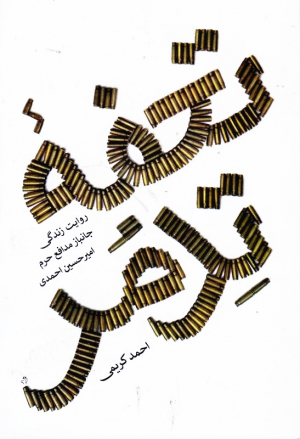 تحفۀ
تدمر
روایت زندگی
جانباز مدافع حرم
امیرحسین احمدی
احمد کریمی